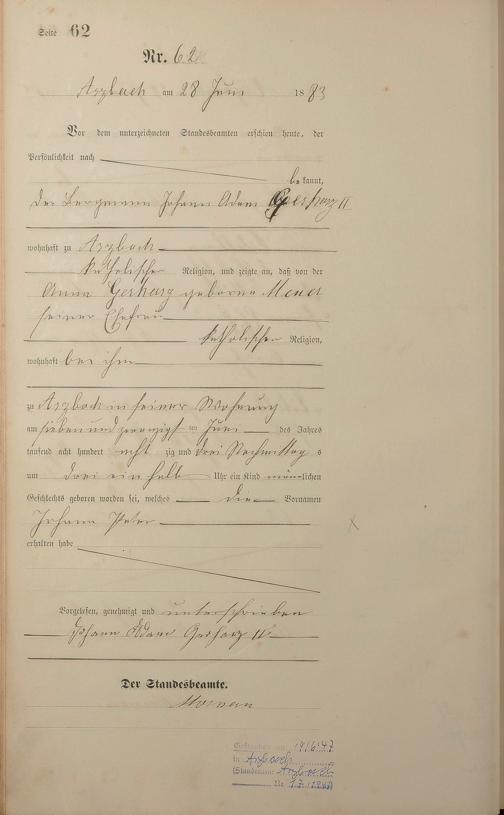 Seite 62
Nr. 62
Arzbach am 28 Juni 1883
Vor dem unterzeichneten Standesbeamten erschien heute, der
Persönlichkeit nach
bekannt,
der Bergmann Johann Adam Gerharz II
wohnhaft zu Arzbach
katholischer Religion, und zeigte an, daß von der
Anna Gerharz geborne
seiner Ehefrau
katholischer Religion,
wohnhaft bei ihm
zu Arzbach in seiner Wohnung
am sieben und zwanzigst ten Juni des Jahres
tausend acht hundert acht zig und drei Nachmittag s
um drei ein halb Uhr ein Kind männlichen
Geschlechts geboren worden sei, welches die Vornamen
Johann Peter
erhalten habe
Vorgelesen, genehmigt und unterschrieben
Johann Adam Gerharz II
Der Standesbeamte.
in Arzbach
(Standesamt Arzbach
Nr.